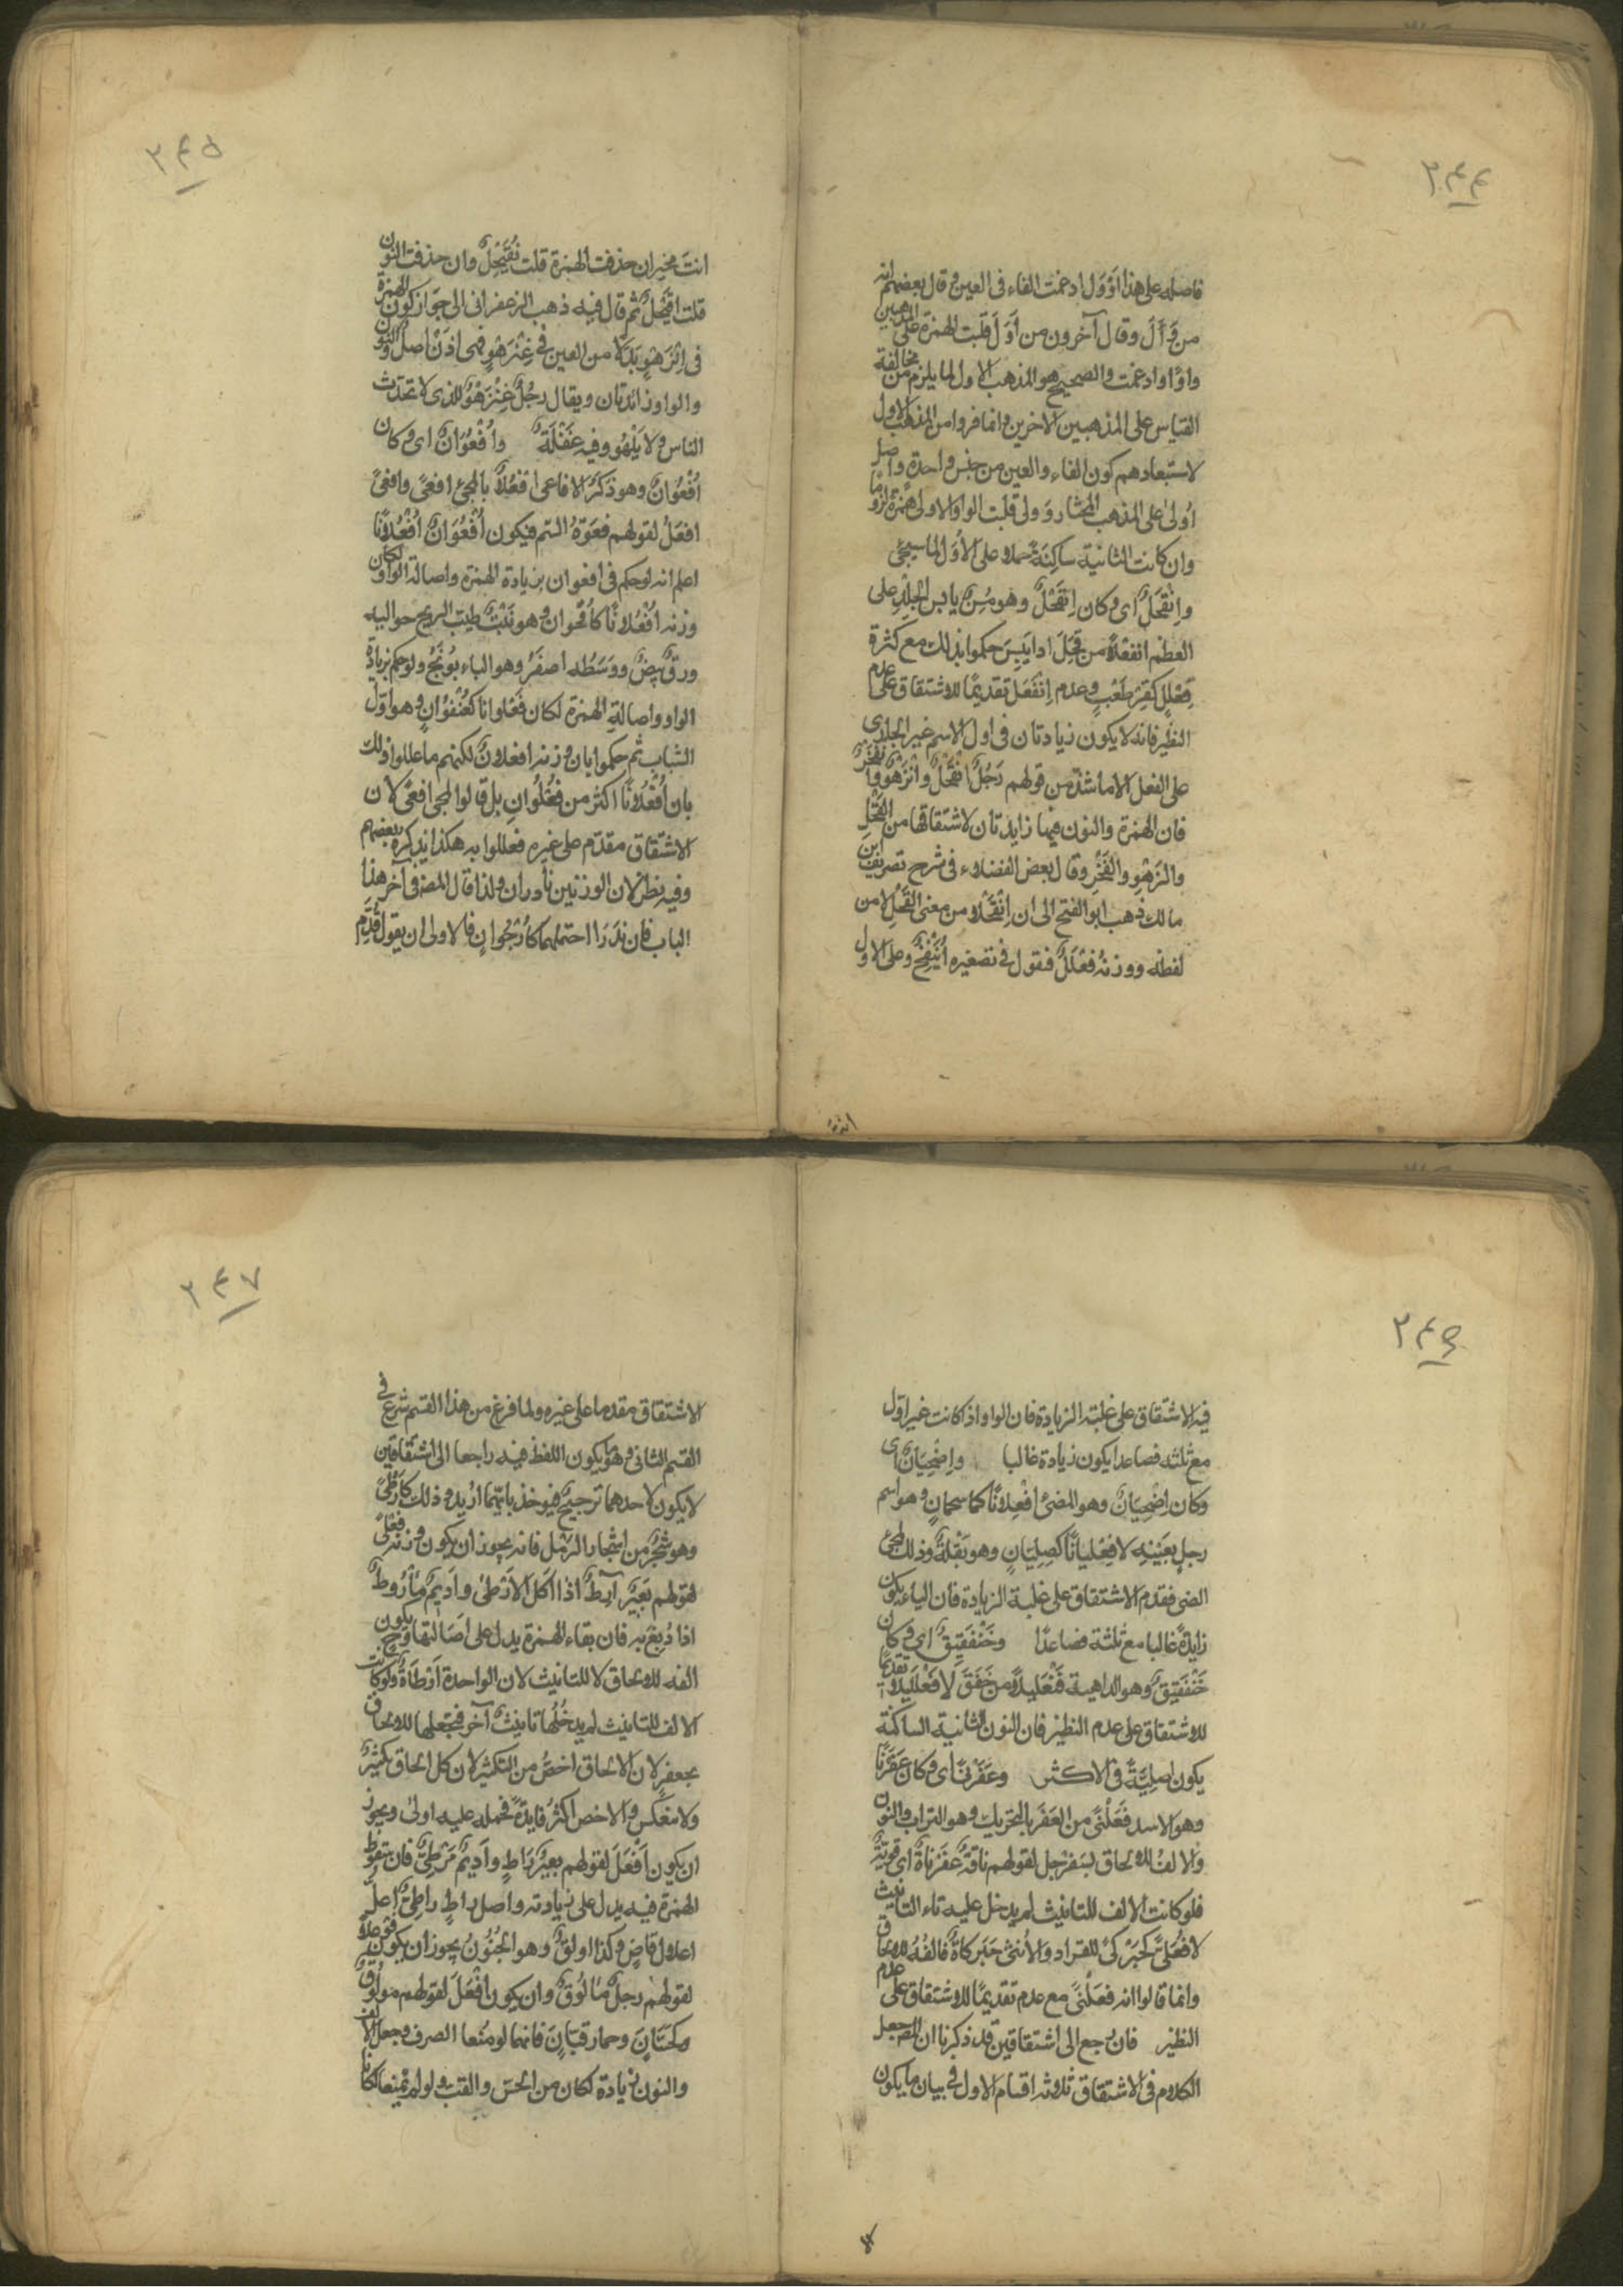 ۲۴۴
فاصله على هذا اَوْوَل ادغمت الفاء فى العين وقال بعضهم انه
من وَأَلَ وقال آخرون من أَوَلَ قلبت الهمزة على المذهبين
واوًا وادغمت والصحيح هو المذهب الاول لما يلزم من مخالفة
القياس على المذهبين الاخرين وانما فروا من المذهب الاول
لاستبعادهم كون الفاء والعين من جنس واحدة واصل
اُولى على المذهب المختار وَولى قلبت الواو الاولى همزة لزوما
وان كانت الثانية ساكِنَةً حملا على الأُوَل لما سيجئ
وانقحلٌ اى وكان اِنقَحْلٌ وهو مُسِنٌّ يابس الجلدِ على
العظم انفعْلاً من قَحَلَ اذا يَبِسَ حكموا بذلك مع كثرة
فِعْلَلٍّ كقِرْطَعْبٍ وعدم اِنْفَعْل تقديمًا للاشتقاق على عدم
النظير فانه لا يكون زيادتان فى اول الاسم غير الجارى
على الفعل الا ما شذّ من قولهم رَجُلٌ انقَحْلٌ وانْزَهْوٌ وانفَخْرٌ
فان الهمزة والنون فيها زايدتان لاشتقاقها من القَحْلِ
والزَهْوِ والفَخْرِ وقال بعض الفضلاء فى شرح تصريف ابن
مالك ذهب ابو الفتح الى ان اِنقَحْلا من معنى القَحْلِ لا من
لفظه ووزنه فِعْلَلٌّ فنقول فى تصغيره اُنَيْقِحٌ وعلى الاول
انت
۲۴۵
انتَ مخير ان حذفت الهمزة قلت نُقَيْحِلٌ وان حذفت النون
قلت اقَيْحِلٌ ثم قال فيه ذهب الزعفرانى الى جواز كون الهمزة
فى اِنْزَهْوٍ بَدَلًا من العين فى عِنْزَهْوٍ فهى اذن اصلٌ والنون
والواو زائدتان ويقال رجُلٌ عِنْزَهْوٌ للذى لا تحدّث
الناس ولا يَلْهُو وفيه غَفْلَةٌ واُفْعُوَانٌ اى وكان
اُفْعُوانٌ وهو ذكَرُ الافاعى افعُلانًا بالمجئ افعًى وافعًى
افعَلُ لقولهم فعَوَةُ السَّم فيكون اُفْعُوَانٌ اُفْعُلاَنًا
اعلم انه لو حكم فى افعوان بزيادة الهمزة واصالة الواو لكان
وزنه اُفْعُلانًا كأُقحوانٍ وهو نَبْتٌ طيّب الريح حواليه
ورقٌ بِيضٌ ووَسَطُه اصفَرُ وهو البابُونَجُ ولو حكم بزيادة
الواو واصالةِ الهمزة لكان فُعْلُوانا كعُنْفُوَانٍ وهو اوّل
الشبابِ ثم حكموا بان وزنه افعلانٌ لكنهم ما عللوا ذلك
بان اُفْعُلانًا اكثر من فُعْلُوانٍ بل قالوا لمجئ افعًى لان
الاشتقاق مقدّم على غيره فعللوا به هكذا يذكره بعضهم
وفيه نظر لان الوزنين نادران ولذا قال المصنف فى آخر هذا
الباب فان نَدَرَا احتملهما كأُرْجُوانٍ فالاولى ان يقول قُدّم
۲۴۶
فيه الاشتقاق على غلبته الزيادة فان الواو اذا كانت غير اوّل
مع ثلثه فصاعدا يكون زيادة غالبا وإضْحِيَانٌ اى
وكان إضْحِيَانٌ وهو المضئ اِفْعِلانًا كما سحمانٍ وهو اسم
رجلٍ بعَيْنِه لا فِعْلِيانًا كصِلِيَانٍ وهو بَقْلَةٌ وذلك لمجئ
الضحى فقدم الاشتقاق على غلبة الزيادة فان الياء تكون
زايدةً غالبا مع ثلثة فصاعدًا وخَنْفَقِيقٌ اى وكان
خَنْفَقِيقٌ وهو الداهية فَنْعَلِيلاً من خَفَقَ لا فَعْلَلِيلا تقديمًا
للاشتقاق على عدم النظير فان النون الثانية الساكنة
يكون اصلِيَّةً فى الاكثر وعَفَرْنًى اى وكان عَفَرْنًا
وهو الاسد فَعَلْنًى من العَفَرِ بالتحريك وهو التراب والنون
والالفُ للالحاق بسَفَرْجل لقولهم ناقةٌ عَفَرْناةٌ اى قويّةٌ
فلو كانت الالف للتانيث لم يدخل عليه تاء التانيث
لا فعَلَّى كحَبَرْكًى للقراد والأُنثى حَبَركاةٌ فالفُهُ للالحاق
وانما قالوا انه فعَلْنًى مع عدم تقديمًا للاشتقاق على عدم
النظير فان رجع الى اشتقاقين قد ذكرنا ان المصنف جعل
الكلام فى الاشتقاق ثلاثه اقسام الاول فى بيان ما يكون
۲۴۷
الاشتقاق مقدما على غيره ولما فرغ من هذا القسم شرع فى
القسم الثانى وهو ما يكون اللفظ فيه راجعا الى اشتقاقين
لا يكون لاحدهما ترجيحٌ فيوخذ بايّهما اُريد وذلك كأَرْطًى
وهو شجَرٌ من اشجار الرَمْل فانه يجوز ان يكون وزنه فَعْلًى
لقولهم بعَيرٌ آرِطٌ اذا اكل الاَرْطى واَدِيمٌ مَأْرُوطٌ
اذا دُبِغَ به فان بقاء الهمزة يدل على اصَالتها وح يكون
الفه للالحاق لا للتانيث لان الواحدة أَرْطاةٌ ولو كانت
الالف للتانيث لم يدخُلها تانيثٌ آخر فجعلها للالحاق
بجعفرٍ لان الالحاق اخصُّ من التكثير لان كل الحاق تكثيرٌ
ولا منعكس والاخص اكثرُ فايدةً فحمله عليه اولى ويجوز
ان يكون اَفْعَلَ لقولهم بعيرٌ رَاطٍ وأَديمٌ مَرْطِىٌّ فان سقوط
الهمزة فيه يدل على زيادته واصل راطٍ راطِىٌ اعلّ
اعلال قاضٍ وكذا اولقٌ وهو الجُنُونُ يجوز ان يكون فَوْعَلاً
لقولهم رجلٌ مَألُوقٌ وان يكون اَفْعَلَ لقولهم مولُوقٌ
وكحَسّانَ وحمار قبّانَ فانهما لو مُنعا الصرف وجعل الالف
والنون زيادة لكان من الحسّ والقبّ ولو لم تمنعا لكانا